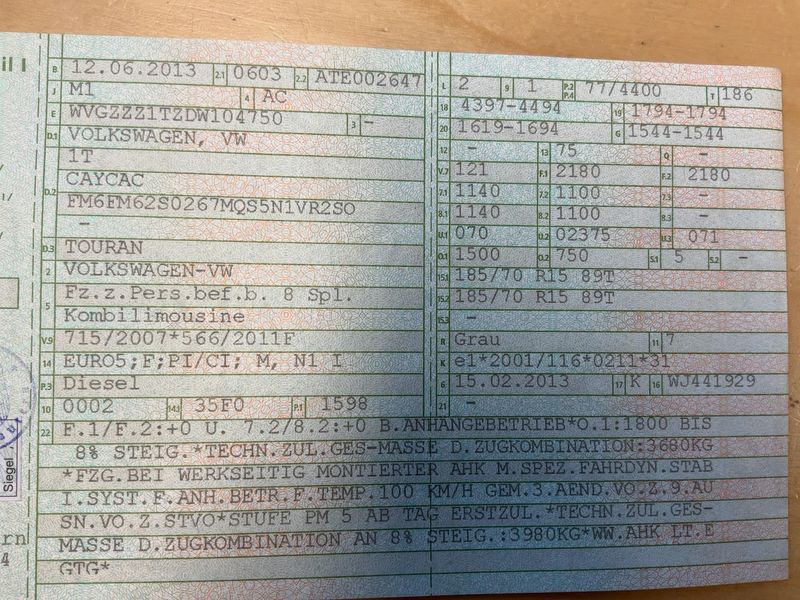 il I
B 12.06.2013 2.1 0603 2.2 ATE002647 L 2 9 1 P.2 P.4 77/4400 T 186
J M1 4 AC 18 4397-4494 19 1794-1794
E WVGZZZ1TZDW104750 3 - 20 1619-1694 G 1544-1544
D.1 VOLKSWAGEN, VW 12 - 13 75 Q -
1T V.7 121 F.1 2180 F.2 2180
CAYCAC 7.1 1140 7.2 1100 7.3 -
D.2 FM6FM62S0267MQS5N1VR2SO 8.1 1140 8.2 1100 8.3 -
- U.1 070 U.2 02375 U.3 071
D.3 TOURAN O.1 1500 O.2 750 S.1 5 S.2 -
2 VOLKSWAGEN-VW 15.1 185/70 R15 89T
5 Fz.z.Pers.bef.b. 8 Spl. 15.2 185/70 R15 89T
Kombilimousine 15.3 -
V.9 715/2007*566/2011F R Grau 11 7
14 EURO5;F;PI/CI; M, N1 I K e1*2001/116*0211*31
P.3 Diesel 6 15.02.2013 17 K 16 WJ441929
10 0002 14.1 35F0 P.1 1598 21 -
22 F.1/F.2:+0 U. 7.2/8.2:+0 B.ANHANGEBETRIEB*O.1:1800 BIS
8% STEIG.*TECHN.ZUL.GES-MASSE D.ZUGKOMBINATION:3680KG
*FZG.BEI WERKSEITIG MONTIERTER AHK M.SPEZ.FAHRDYN.STAB
I.SYST.F.ANH.BETR.F.TEMP.100 KM/H GEM.3.AEND.VO.Z.9.AU
SN.VO.Z.STVO*STUFE PM 5 AB TAG ERSTZUL.*TECHN.ZUL.GES-
MASSE D.ZUGKOMBINATION AN 8% STEIG.:3980KG*WW.AHK LT.E
GTG*
Siegel
ern
4